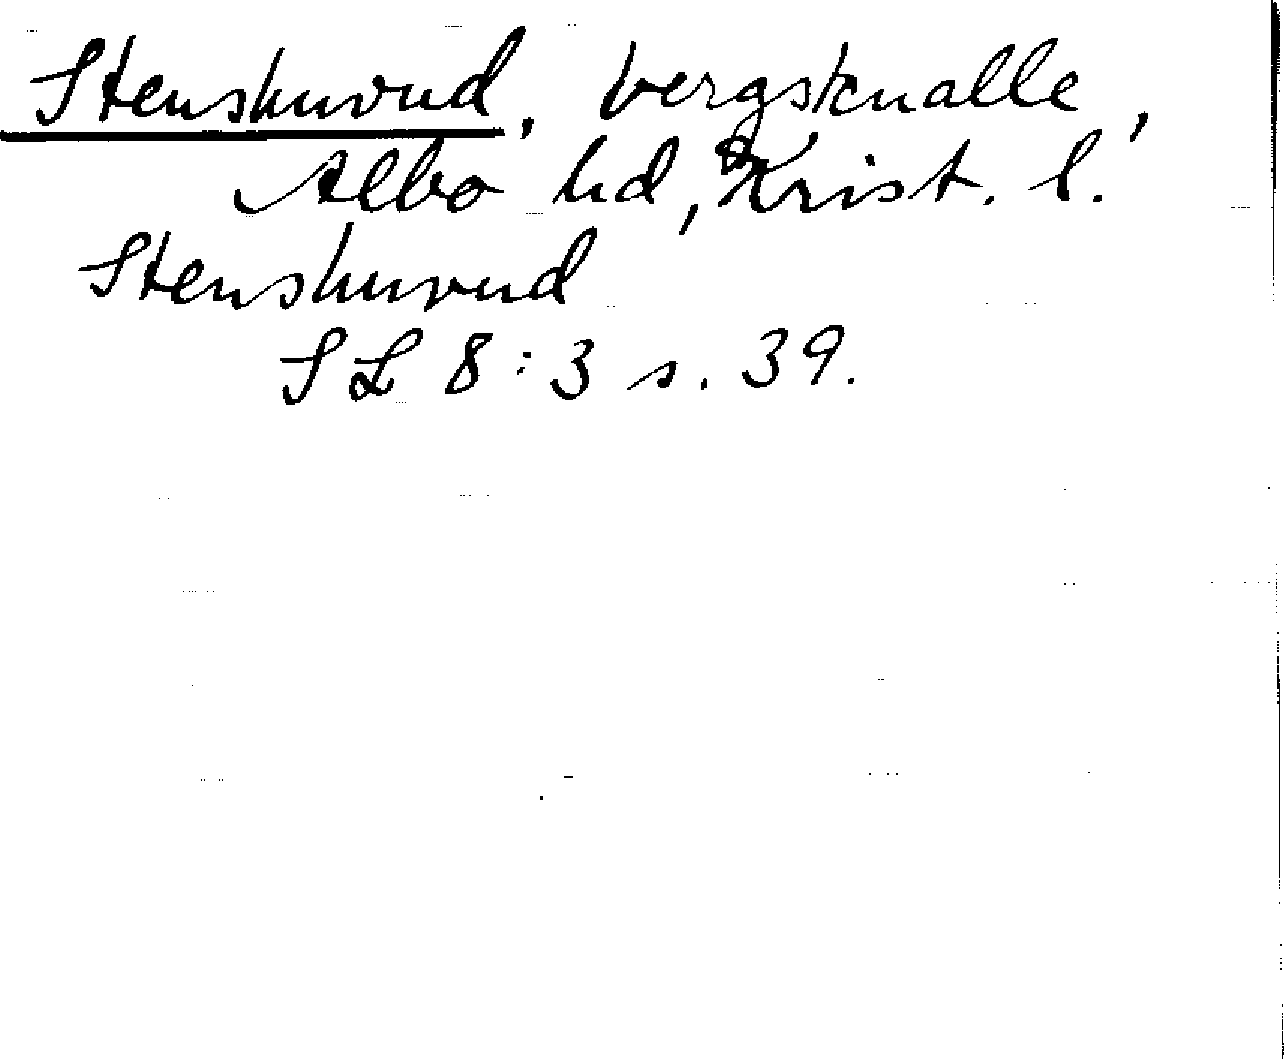 Stenshuvud, bergsknalle,
Albo hd, Krist. l.
Stenshuvud
SL 8:3 s. 39.